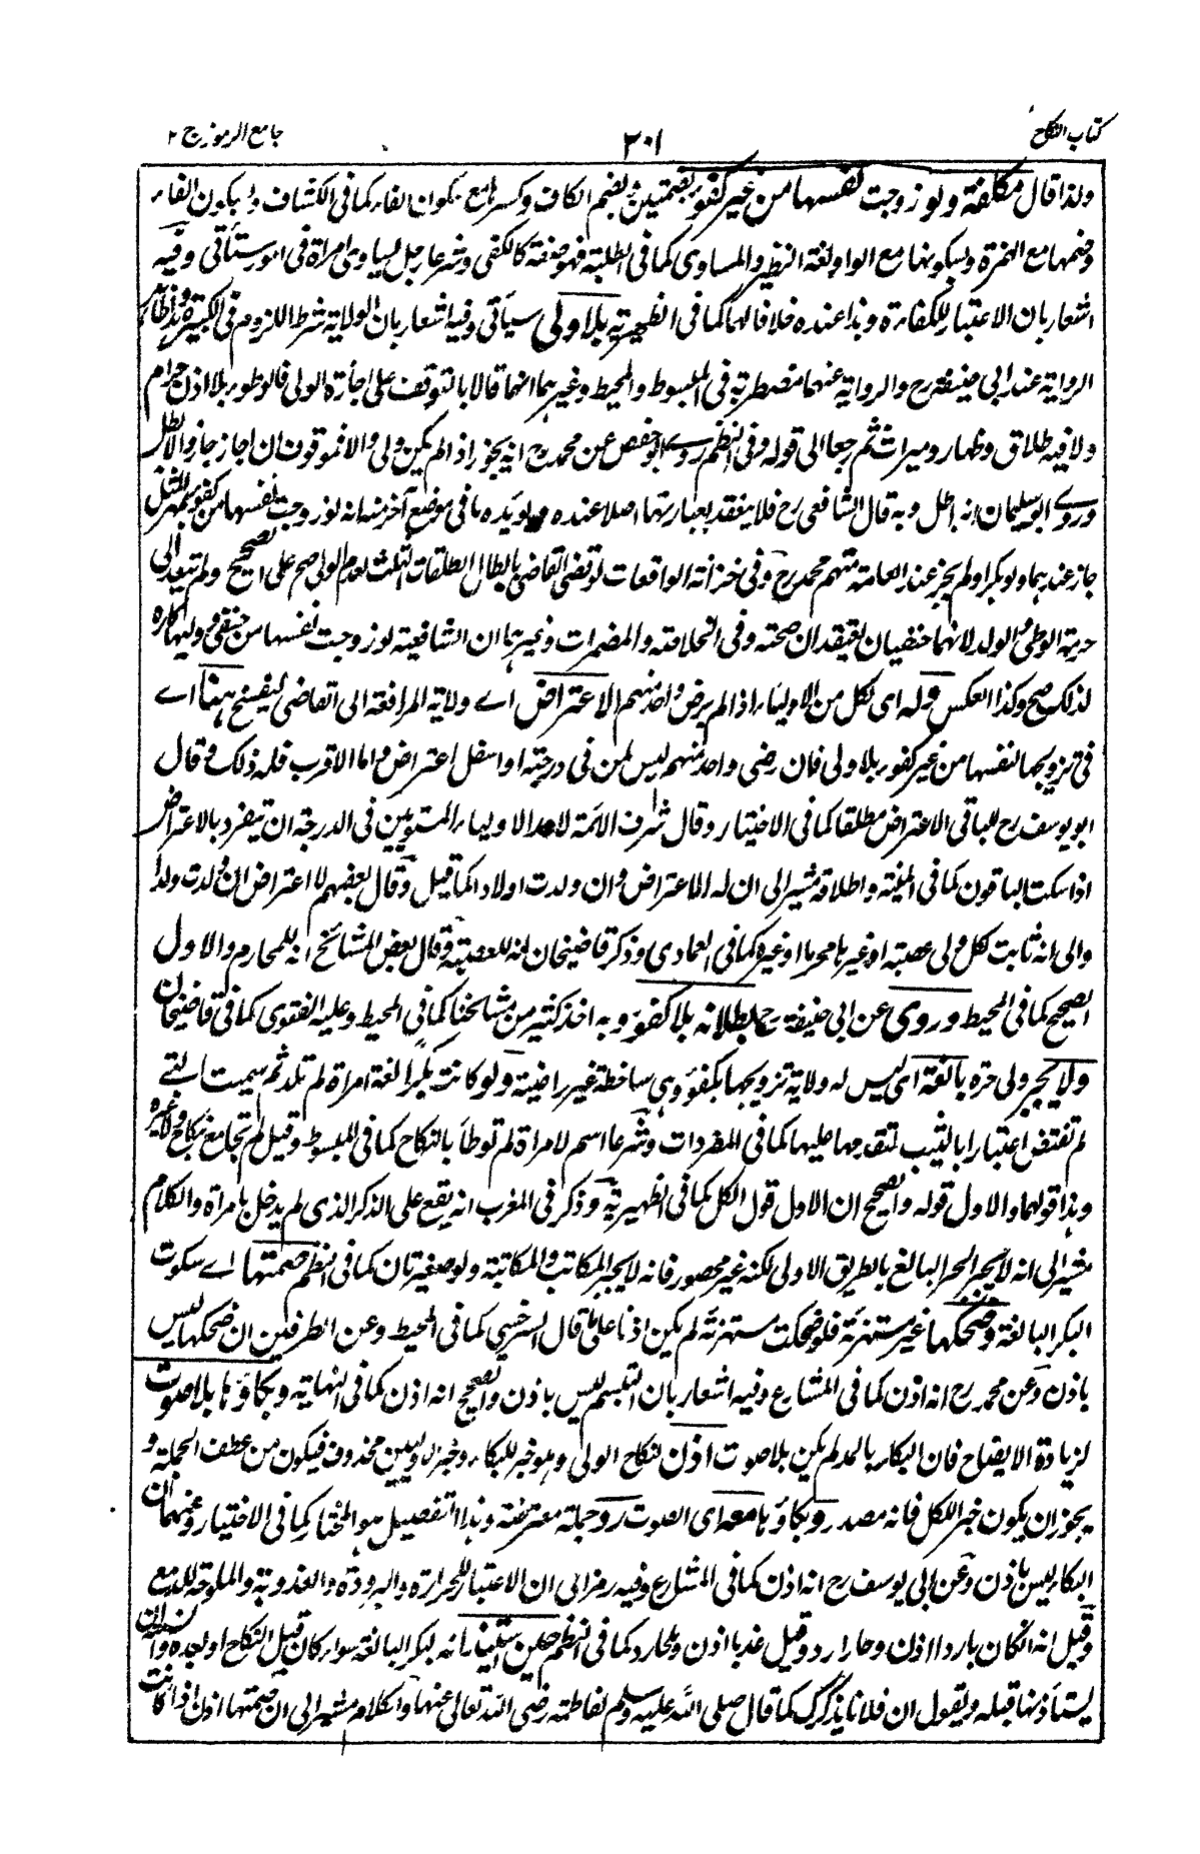 كتاب النكاح
٣٠١
جامع الرموز ج ٢
ولذا قال مكلفة ولو زوجت نفسها من غير كفو بضمتين وبضم الكاف وكسرها مع سكون الفاء كما فى الكشاف و سكون الفاء
وضمها مع الهمزة وبسكونها مع الواو لغة النظير والمساوى كما فى الطلبة فهو صفة كالكفى وشرعا رجل يساوى امراة فى امور ستأتى وفيه
اشعار بان الاعتبار للكفاءة وهذا عنده خلافا لهما كما فى الظهيرية بلا ولى سيأتى وفيه اشعار بان الولاية شرط اللزوم فى الكبيرة وهذا ظاهر
الرواية عند ابى حنيفة رح والرواية عنهما مضطربة فى المبسوط والمحيط وغيرهما انهما قالا بالتوقف على اجازة الولى فالوطؤ بلا اذن حرام
ولا فيه طلاق وظهار وميراث ثم رجعا الى قوله وفى النظم روى ابو حفص عن محمد رح انه يجوز اذا لم يكن ولى والا فموقوف ان اجاز جاز والا بطل
وروى ابو سليمان انه باطل وبه قال الشافعى رح فلا ينعقد بعبارتها اصلا عنده ويؤيده ما فى موضع آخر منه انه لو زوجت نفسها من كفو بمهر المثل
جاز عندهما ولو بكرا ولم يجز عند العامة منهم محمد رح وفى خزانة الواقعات لو قضى القاضى بابطال الطلقات الثلث لعدم الولى صح على الصحيح ولم تتعد الى
حرمة الوطى والولد لانهما حنفيان يعتقدان صحته وفى الخلاصة والمضمرات وغيرها ان الشافعية لو زوجت نفسها من حنفى ووليها كاره
لذلك صح وكذا العكس وله اى لكل من الاولياء اذا لم يرض واحد منهم الاعتراض اے ولاية المرافعة الى القاضى ليفسخ هنا اے
فى تزويجها نفسها من غير كفو بلا ولى فان رضى واحد منهم ليس لمن فى درجته او اسفل اعتراض واما الاقرب فله ذلك وقال
ابو يوسف رح للباقى الاعتراض مطلقا كما فى الاختيار وقال شرف الائمة لاحد الاولياء المستويين فى الدرجة ان يتفرد بالاعتراض
اذا سكت الباقون كما فى المنية واطلاقه مشير الى ان له الاعتراض وان ولدت اولادا كما قيل وقال بعضهم لا اعتراض ان ولدت ولدا
والى انه ثابت لكل ولى عصبة او غيرها محرما او غيره كما فى العمادى وذكر قاضيخان انه للعصبة وقال بعض المشائخ انه للمحارم والاول
الصحيح كما فى المحيط وروى عن ابى حنيفة رح بطلانه بلا كفو وبه اخذ كثير من مشائخنا كما فى المحيط وعليه الفتوى كما فى قاضيخان
ولا يجبر ولى حرة بالغة اى ليس له ولاية تزويجها بكفو وهى ساخطة غير راضية ولو كانت بكرا لغة امراة لم تلد ثم سميت التے
لم تفتض اعتبارا بالثيب لتقدمها عليها كما فى المفردات وشرعا اسم لامراة لم توطأ بالنكاح كما فى المبسوط وقيل لم تجامع بنكاح ولا غيره
وهذا قولهما والاول قوله والصحيح ان الاول قول الكل كما فى الظهيرية وذكر فى المغرب انه يقع على الذكر الذى لم يدخل بامراة والكلام
مشير الى انه لا يجبر الحر البالغ بالطريق الاولى لكنه غير محصور فانه لا يجبر المكاتب والمكاتبة ولو صغيرتان كما فى النظم صمتها اے سكوت
البكر البالغة وضحكها غير مستهزئة فلو ضحكت مستهزئة لم يكن اذنا على ما قال السرخسى كما فى المحيط وعن الطرفين ان ضحكها ليس
باذن وعن محمد رح انه اذن كما فى المشارع وفيه اشعار بان التبسم ليس باذن والصحيح انه اذن كما فى النهاية وبكاؤها بلا صوت
لزيادة الايضاح فان البكاء بالمد لم يكن بلا صوت اذن لنكاح الولى وهو خبر للبكاء وخبر الاوليين محذوف فيكون من عطف الجملة و
يجوز ان يكون خبرا للكل فانه مصدر وبكاؤها معه اى الصوت رد جملة معترضة وهذا التفصيل هو المختار كما فى الاختيار وعنهما ان
البكاء ليس باذن وعن ابى يوسف رح انه اذن كما فى المشارع وفيه رمز الى ان الاعتبار للحرارة والبرودة والعذوبة والملوحة للدمع
وقيل انه ان كان باردا اذن وحارا رد وقيل عذبا اذن وملحا رد كما فى النظم حين استيذانه لبكر البالغة سواء كان قبل النكاح او بعده والسنة ان
يستأذنها قبله ويقول ان فلانا يذكرك كما قال صلى الله عليه وسلم لفاطمة رضى الله تعالى عنها والكلام مشير الى ان صمتها اذن اذا كانت